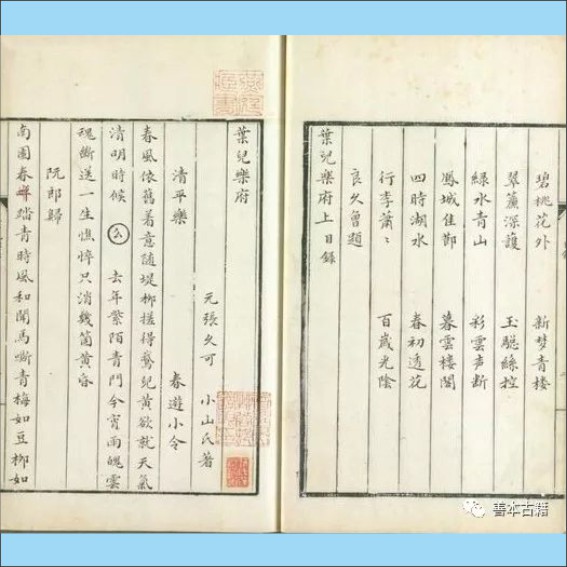 碧桃花外　新梦青楼
翠簾深護　玉驄絲控
緑水青山　彩雲声断
鳳城佳　暮雲樓閣
四時湖水　春初透花
行李蕭〻　百歲光陰
良久曾題
葉兒樂府上目録
葉兒樂府
元張久可　小山氏著
清平樂　春遊小令
春風依舊着意随堤柳搓得鵞兒黄欲就天氣
清明時候　么　去年紫陌青門今宵雨魄雲
魂断送一生憔悴只消幾箇黄昏
阮郎歸
南園春半踏青時風和聞馬嘶青梅如豆柳如
善本古籍